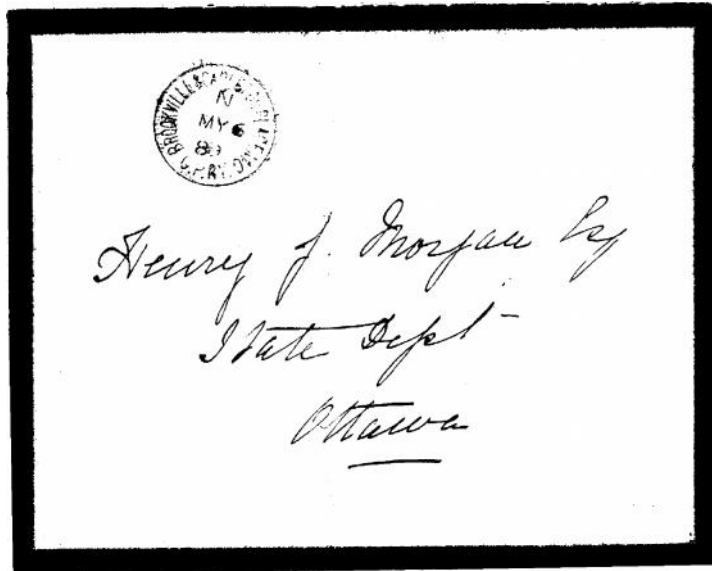 BROCKVILLE & CARLETON PLACE M.C.
N
MY 6
89
C.P.RY.
Henry J. Morgan Esq
State Dept
Ottawa